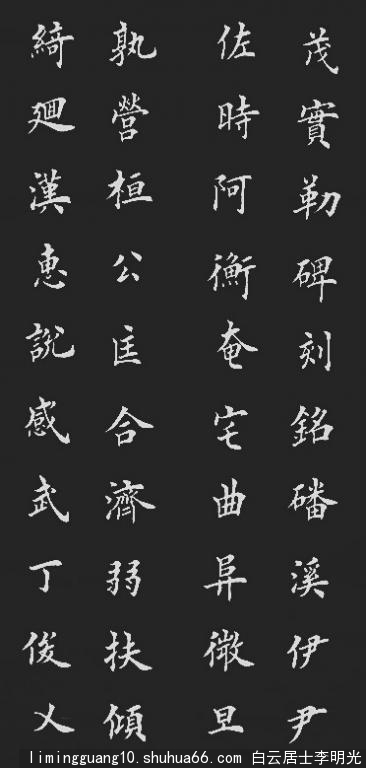 茂實勒碑刻銘磻溪伊尹
佐時阿衡奄宅曲阜微旦
孰營桓公匡合濟弱扶傾
綺迴漢惠說感武丁俊乂
limingguang10.shuhua66.com 白云居士李明光